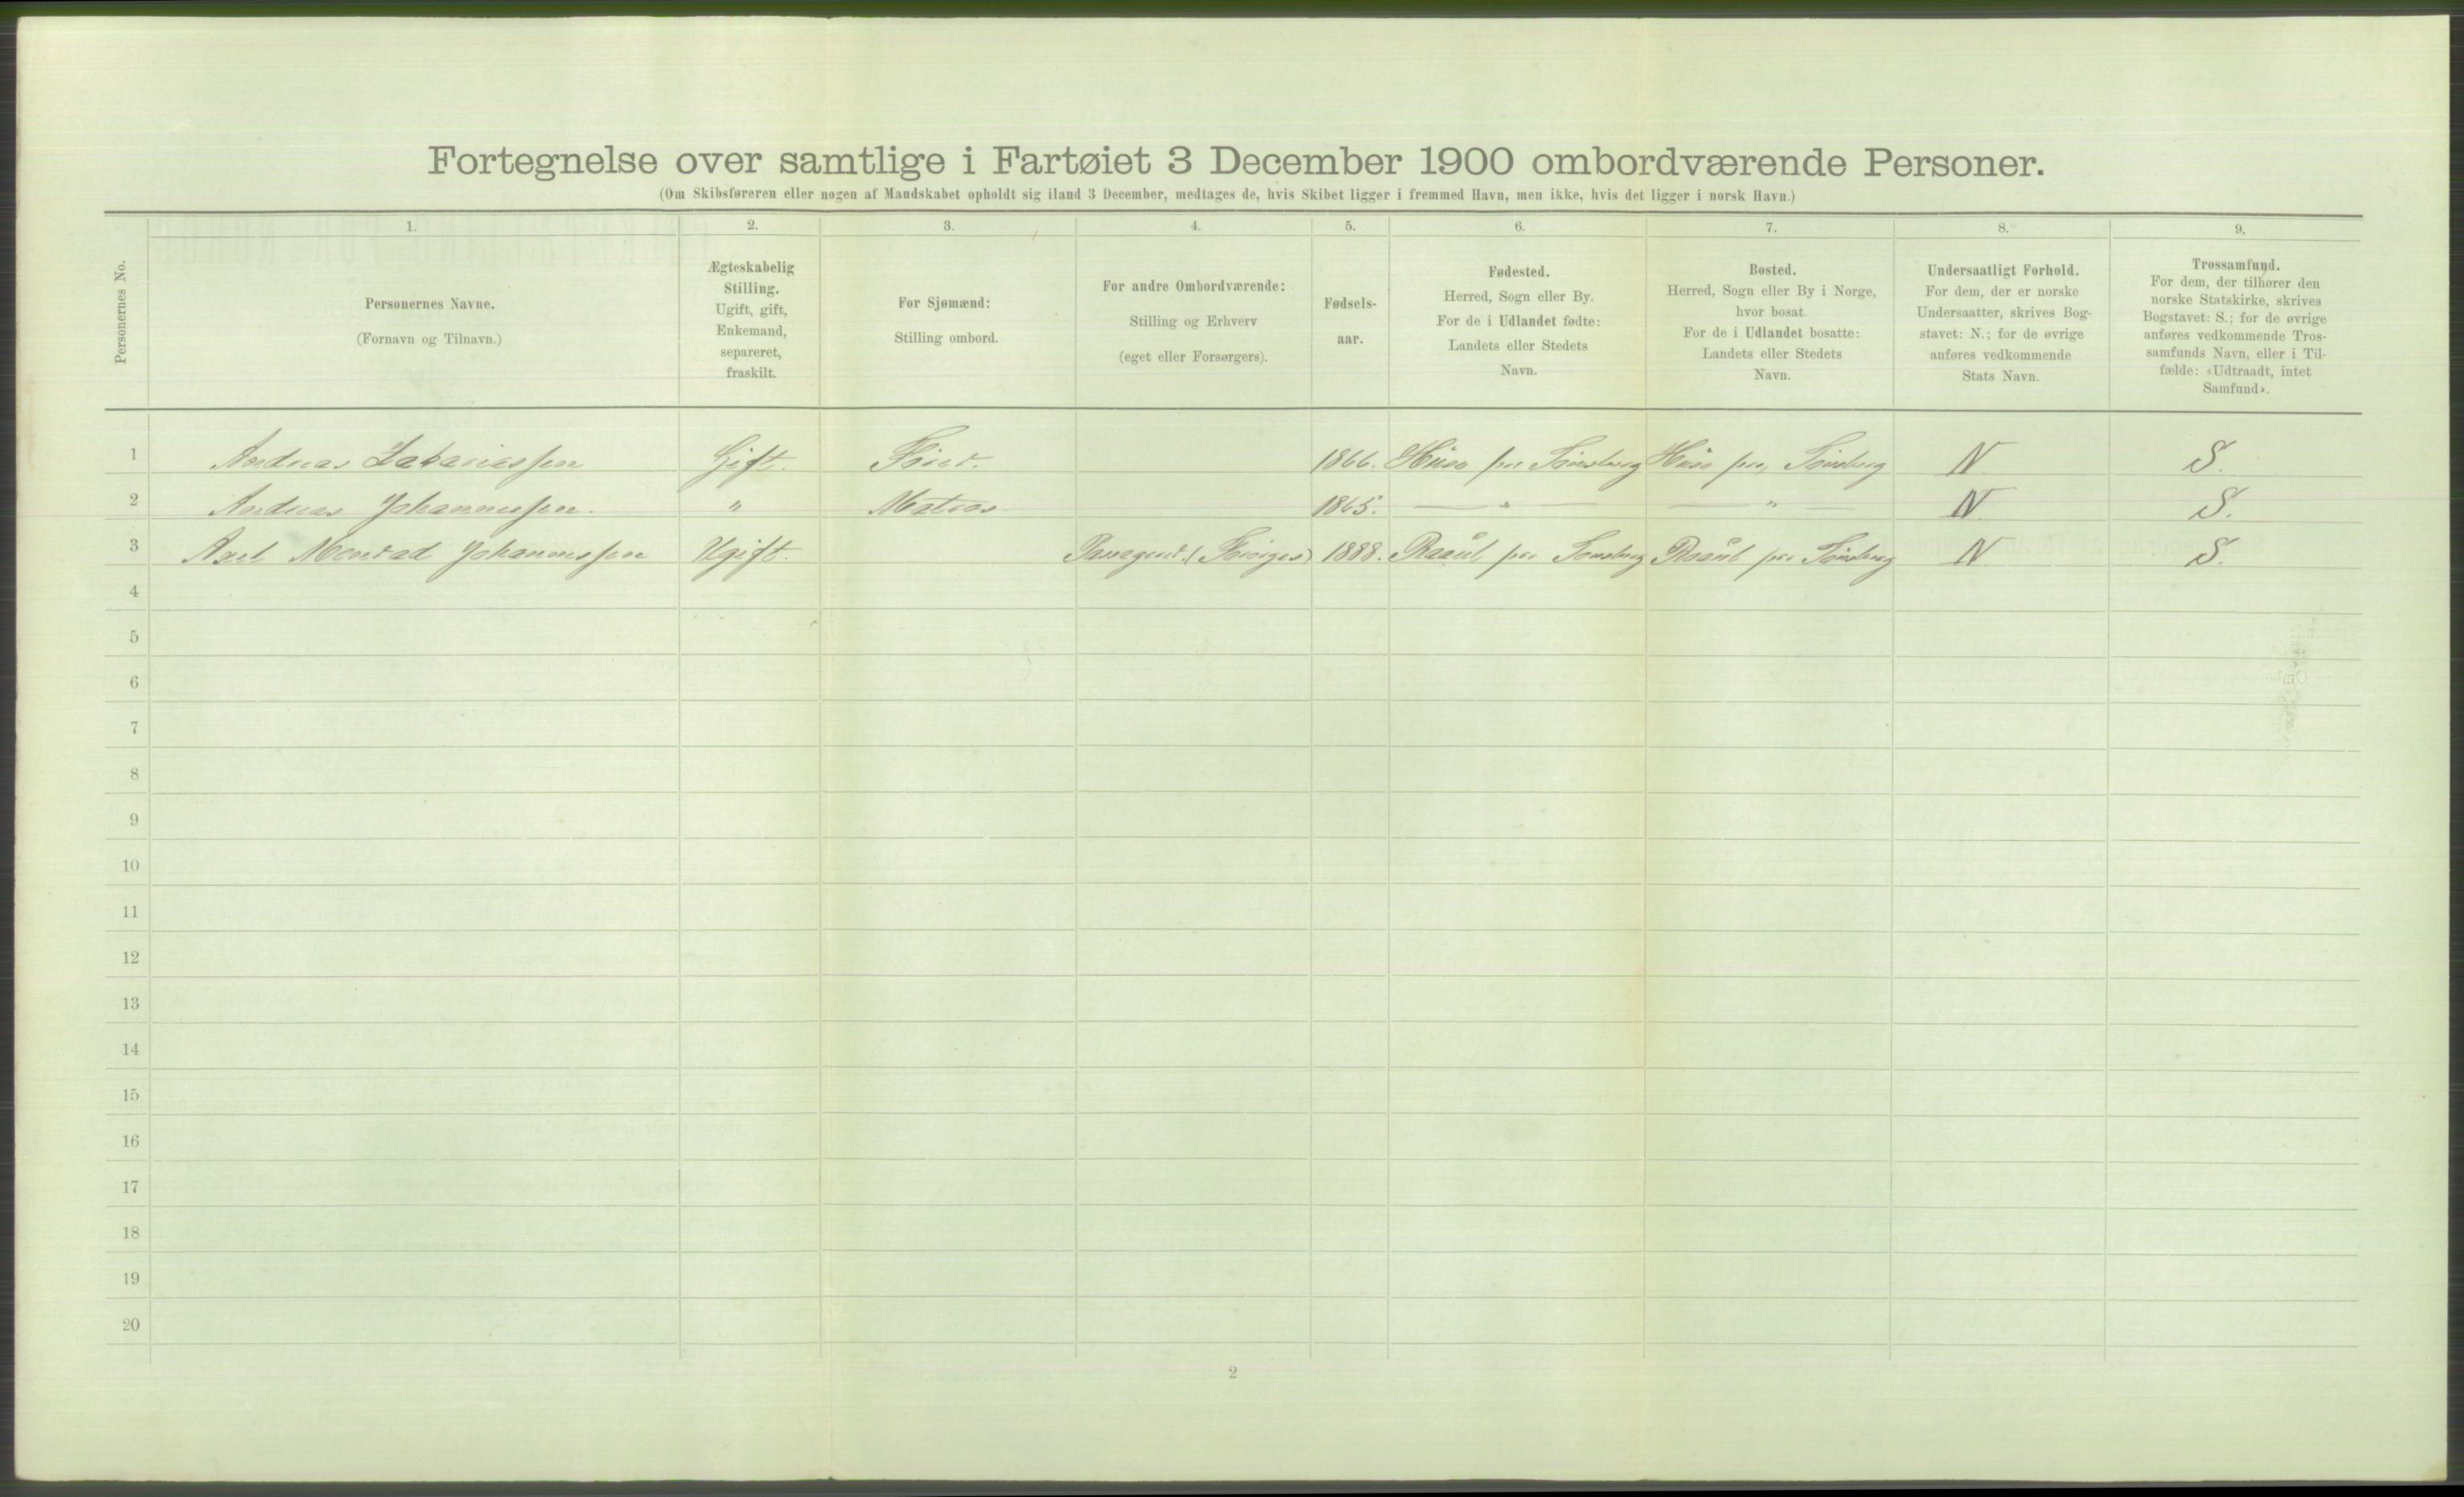 Fortegnelse over samtlige i Fartøiet 3 December 1900 ombordværende Personer.
(Om Skibsføreren eller nogen af Mandskabet opholdt sig iland 3 December, medtages de, hvis Skibet ligger i fremmed Havn, men ikke, hvis det ligger i norsk Havn.)
Personernes No.
1.
Personernes Navne.
(Fornavn og Tilnavn.)
2.
Ægteskabelig
Stilling.
Ugift, gift,
Enkemand,
separeret,
fraskilt.
3.
For Sjømænd:
Stilling ombord.
4.
For andre Ombordværende:
Stilling og Erhverv
(eget eller Forsørgers).
5.
Fødsels-
aar.
6.
Fødested.
Herred, Sogn eller By.
For de i Udlandet fødte:
Landets eller Stedets
Navn.
7.
Bosted.
Herred, Sogn eller By i Norge,
hvor bosat.
For de i Udlandet bosatte:
Landets eller Stedets
Navn.
8.
Undersaatligt Forhold.
For dem, der er norske
Undersaatter, skrives Bog-
stavet: N.; for de øvrige
anføres vedkommende
Stats Navn.
9.
Trossamfund.
For dem, der tilhører den
norske Statskirke, skrives
Bogstavet: S.; for de øvrige
anføres vedkommende Tros-
samfunds Navn, eller i Til-
fælde: «Udtraadt, intet
Samfund».
1 Andreas Zakariassen Gift. Fører. 1866. Husø pr Tønsberg Husø pr, Tønsberg N S.
2 Andreas Johannessen. " Matros 1865. — " — — " — N. S.
3 Axel Monrad Johannessen Ugift. 1888. pr Tønsberg pr Tønsberg N S.
4
5
6
7
8
9
10
11
12
13
14
15
16
17
18
19
20
2